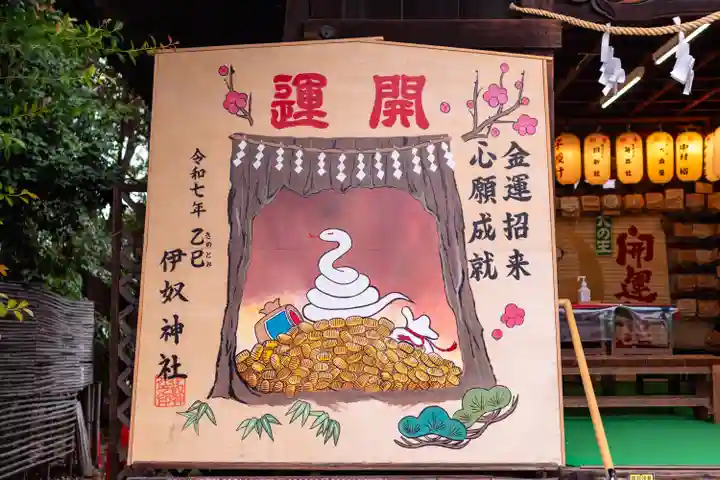 開運
金運招来
心願成就
令和七年 乙巳
きのとみ
伊奴神社
開運
犬の王